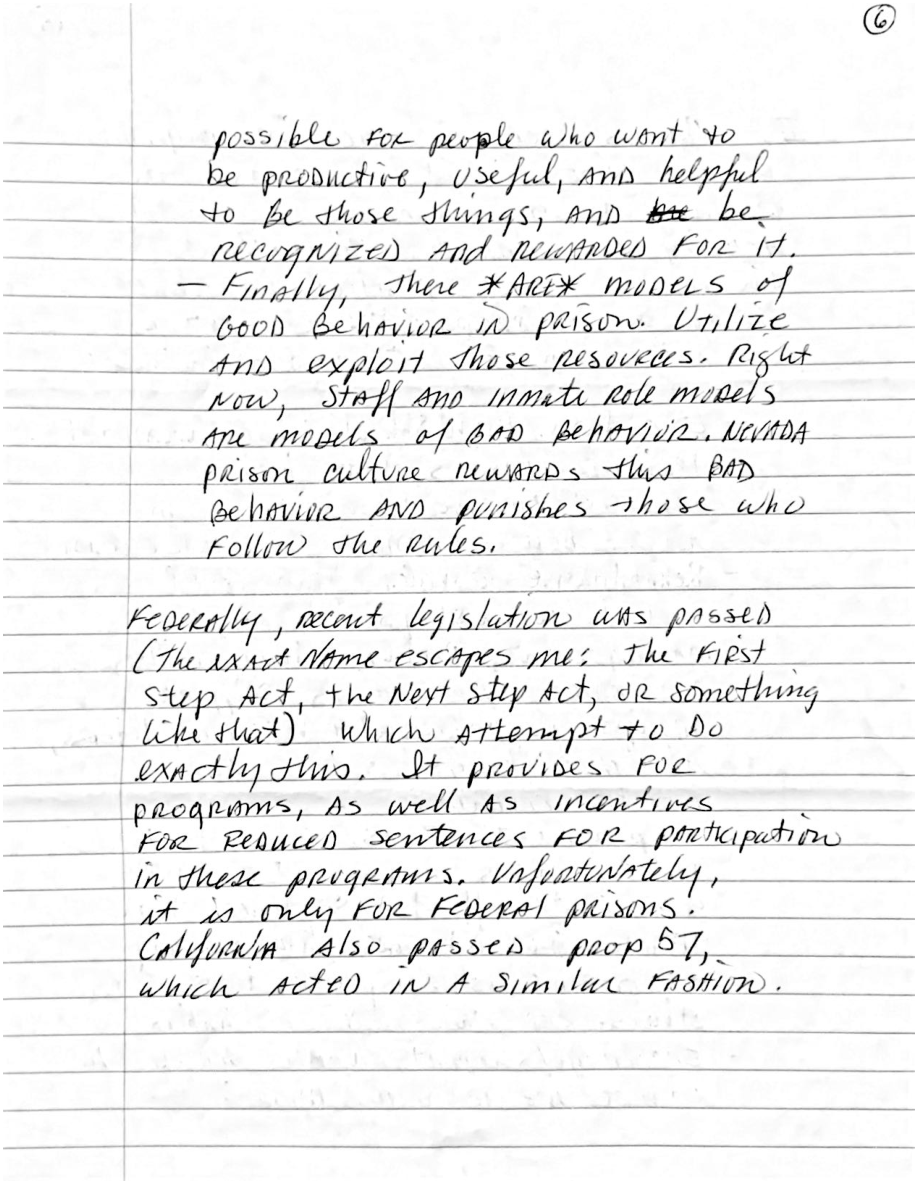 6
possible for people who want to
be productive, useful, and helpful
to be those things, and be
recognized and rewarded for it.
— Finally, there *ARE* models of
good behavior in prison. Utilize
and exploit those resources. Right
now, staff and inmate role models
are models of BAD behavior. Nevada
prison culture rewards this BAD
behavior and punishes those who
follow the rules.
Federally, recent legislation was passed
(the exact name escapes me: The First
Step Act, the Next Step Act, or something
like that) which attempt to do
exactly this. It provides for
programs, as well as incentives
for reduced sentences for participation
in these programs. Unfortunately,
it is only for Federal prisons.
California also passed prop 57,
which acted in a similar fashion.